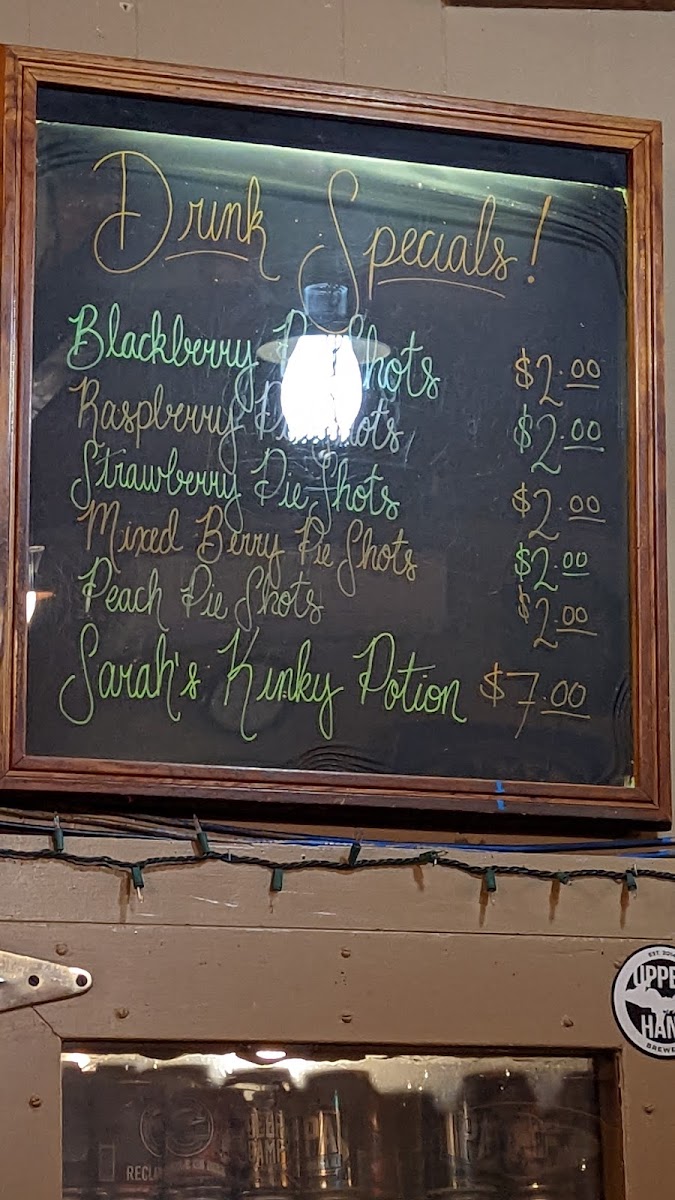 Drink Specials!
Blackberry Pie Shots $2.00
Raspberry Pie Shots $2.00
Strawberry Pie Shots $2.00
Mixed Berry Pie Shots $2.00
Peach Pie Shots $2.00
Sarah's Kinky Potion $7.00
EST. 2014
UPPE
HAN
BREWE
RECL